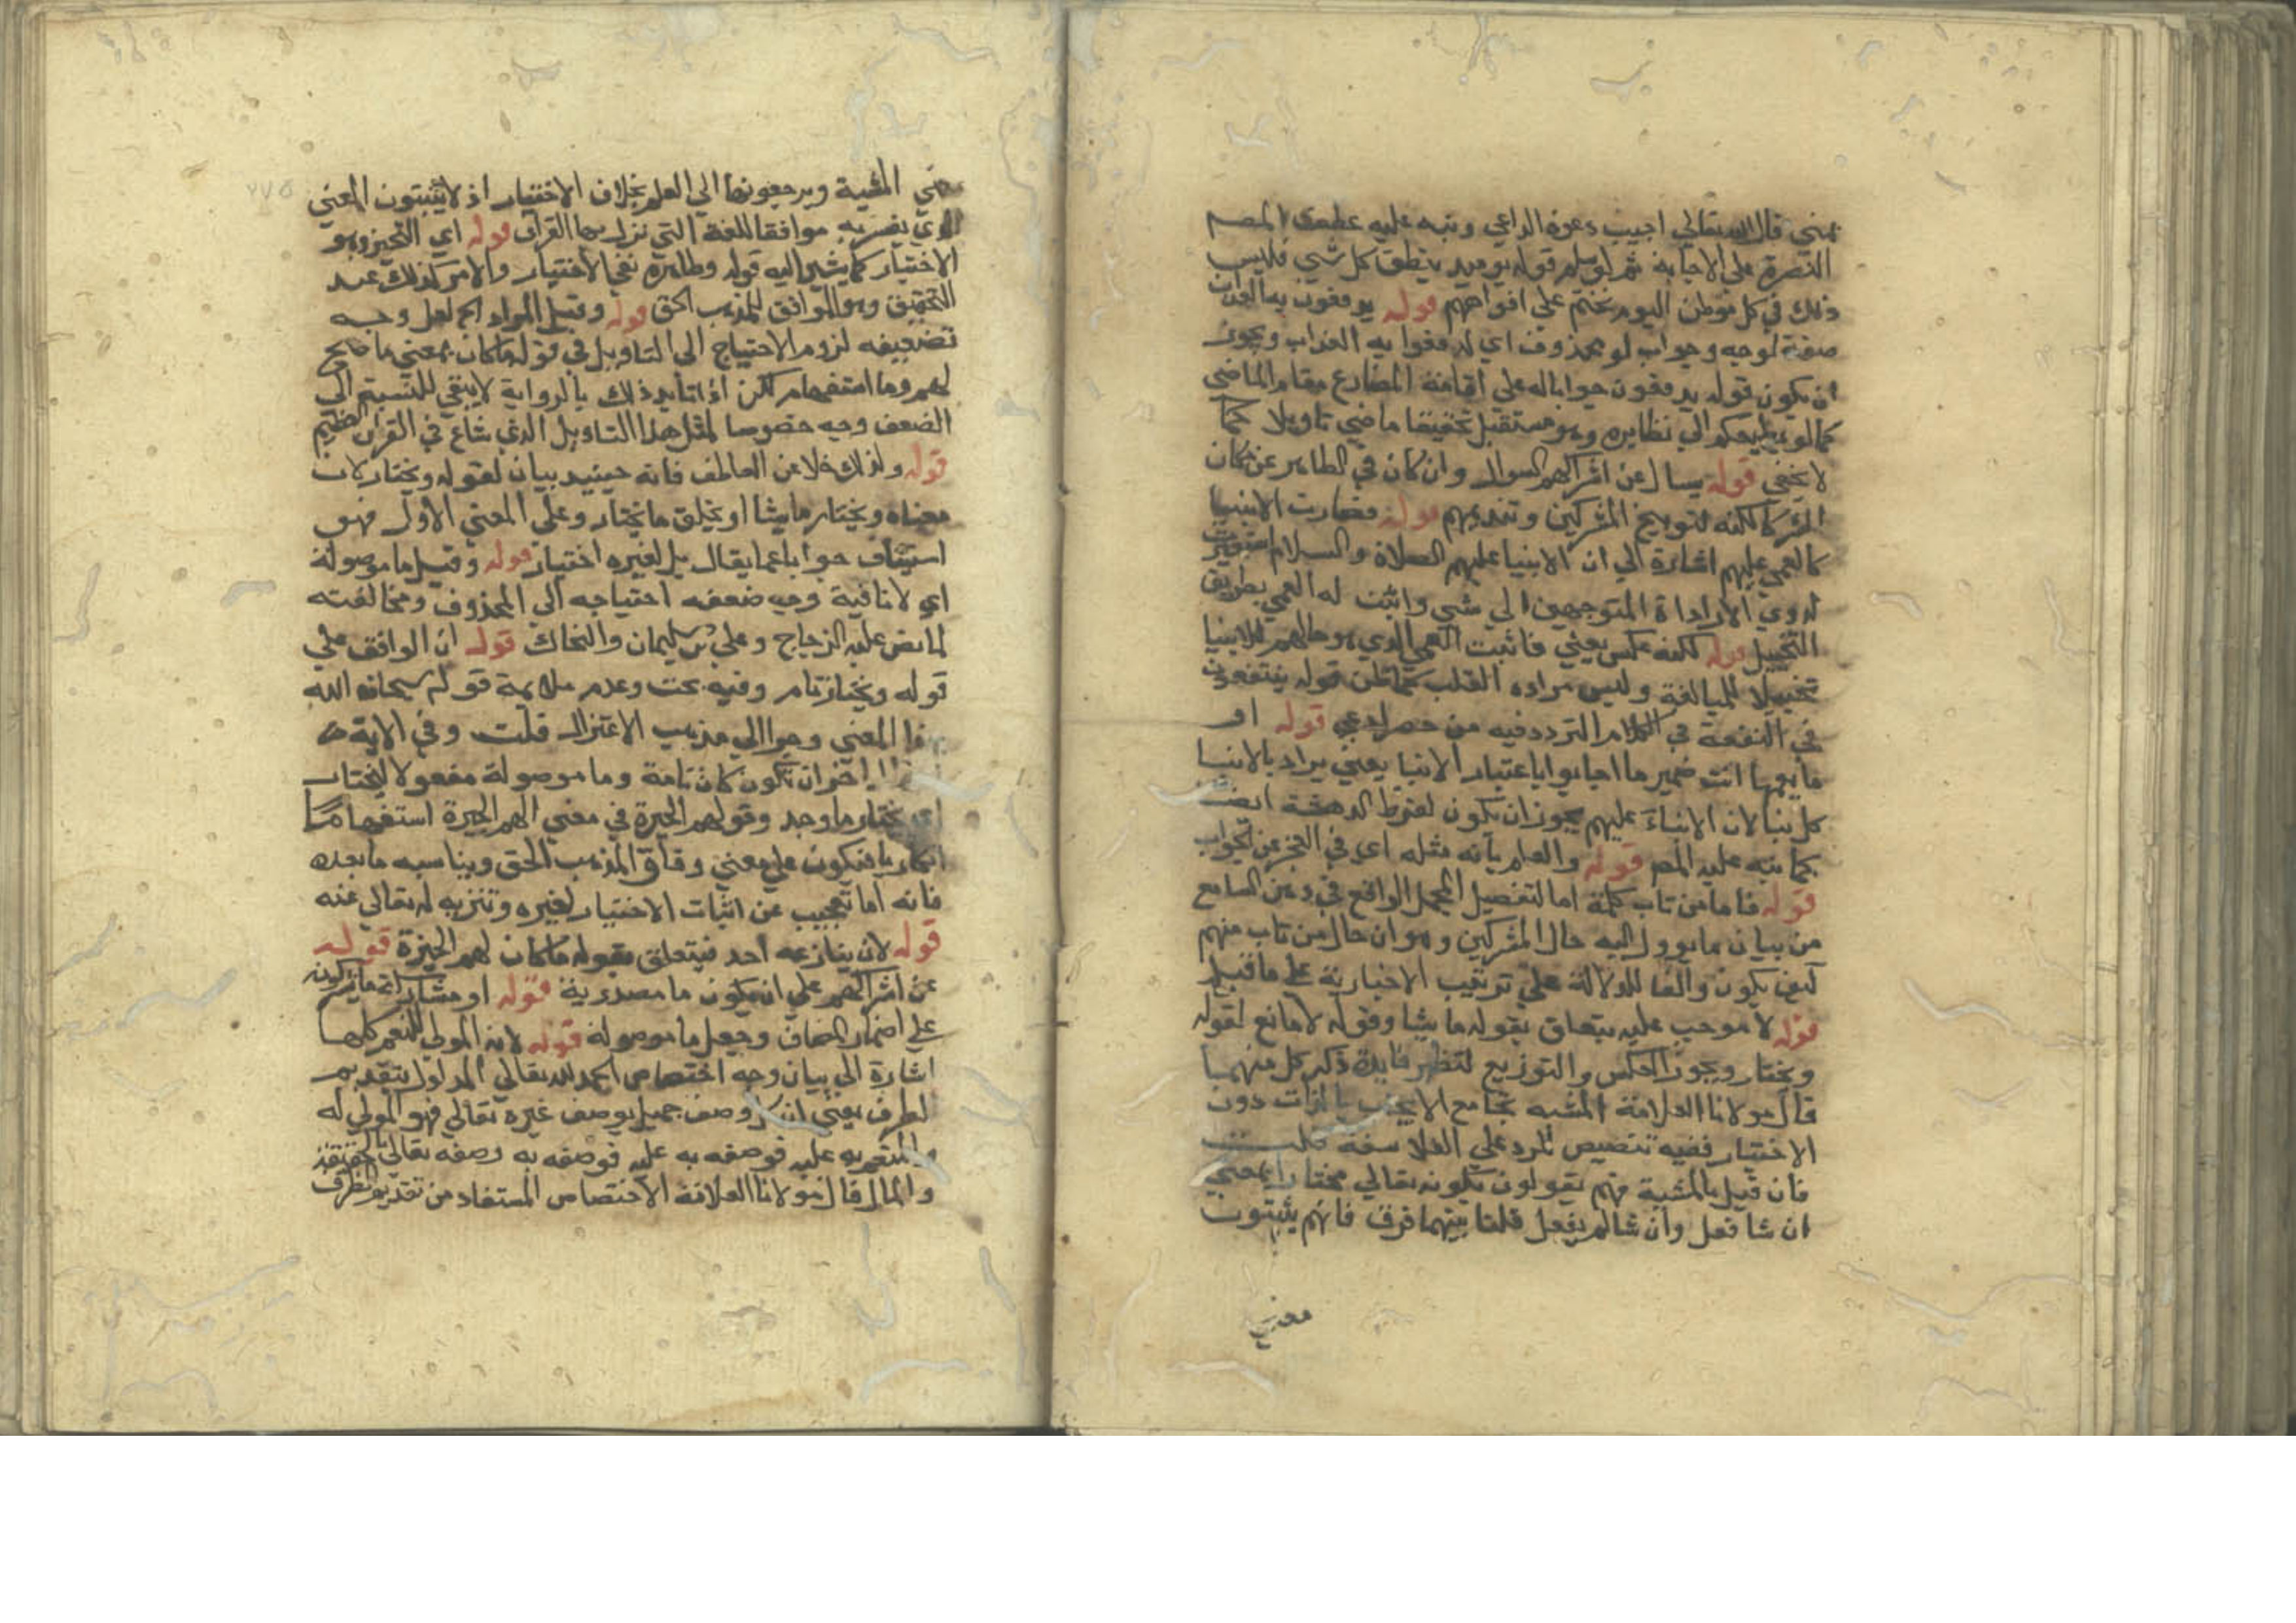 بمعني قال الله تعالي اجيب دعوة الداعي ونبه عليه عطف المصـ
النصرة علي الاجابة ثم لو سلم قوله يوميد ينطق كل شي فليس
ذلك في كل موطن اليوم نختم علي افواههم قوله يدفعون به العذاب
صفة لوجه وجواب لو محذوف اي لدفعوا به العذاب ويجوز
ان يكون قوله يدفعون جوابا له علي اقامة المضارع مقام الماضي
كما لو يطيعكم الي نظايره وهو مستقبل تحقيقا ماضي تاويلا كما
لا يخفي قوله يسال عن اشراكهم السوال وان كان في الظاهر عن مكان
الشركا لكنه لتوبيخ المشركين وتنديمهم قوله فصارت الانبيا
كالعمي عليهم اشارة الي ان الانبيا عليهم الصلاة والسلام استعيرت
لذوي الارادة المتوجهين الي شي واثبت له العمي بطريق
التخييل قوله لكنه عكس يعني فاثبت العمي الذي هو حالهم للانبيا
تخييلا للمبالغة وليس مراده القلب كما ظن قوله يتتعتعون
في التعتعة في الكلام التردد فيه من حصر او عي قوله او
ما يعمها انث ضمير ما اجابوا باعتبار الانبا يعني يراد بالانبا
كل نبا لان الانباء عليهم يجوز ان تكون لفرط الدهشة ايضا
كما نبه عليه المص قوله والعلم بانه مثله اي في العجز عن الجواب
قوله فاما من تاب كلمة اما لتفصيل المجمل الواقع في ذهن السامع
من بيان ما يوول اليه حال المشركين وهو ان حال من تاب منهم
كيف يكون والفا للدلالة علي ترتيب الاخبار به علي ما قبله
قوله لا موجب عليه يتعلق بقوله ما يشا وقوله لا مانع لقوله
ويختار ويجوز العكس والتوزيع لتظهر فايدة ذكر كل منهما
قال مولانا العلامة المشيه تجامع الايجاب بالذات دون
الاختيار ففيه تنصيص للرد علي الفلاسفة قلت
فان قيل بالمشية فهم يقولون بكونه تعالي مختارا بمعني
ان شا فعل وان شا لم يفعل قلنا بينهما فرق فانهم يثبتون
معني
معني المشية ويرجعونها الي العلم بخلاف الاختيار اذ لا يثبتون المعني
الذي يفسر به موافقا للغة التي نزل بها القران قوله اي التخيز وهو
الاختيار كما يشير اليه قوله وظاهره نفي الاختيار والامر كذلك عند
التحقيق وهو الموافق للمذهب الحق قوله وقيل المراد الخ لعل وجه
تضعيفه لزوم الاحتياج الي التاويل في قوله ما كان بمعني ما صلح
لهم وما استفهام لكن اذا تايد ذلك بالرواية لا يبقي للنسبة الي
الضعف وجه خصوصا لمثل هذا التاويل الذي شاع في القران العظيم
قوله ولذلك خلا عن العاطف فانه حينيذ بيان لقوله ويختار لان
معناه ويختار ما يشا او يخلق ما يختار وعلي المعني الاول فهو
استيناف جوابا عما يقال هل لغيره اختيار قوله وقيل ما موصولة
اي لا نافية وجه ضعفه احتياجه الي المحذوف ومخالفته
لما نص عليه الزجاج وعلي بن سليمان والنحاك قوله ان الوقف علي
قوله ويختار تام وفيه بحث وعدم ملايمة قوله سبحان الله
هذا المعني وهو الي مذهب الاعتزال قلت وفي الاية
اخر ان تكون كان تامة وما موصولة مفعولا ليختار
اي يختار ما وجد وقولهم الخيرة في معني الهم الخيرة استفهاما
انكاريا فيكون علي معني وفاق المذهب الحق ويناسبه ما بعده
فانه اما تعجيب عن اثبات الاختيار لغيره وتنزيه له تعالي عنه
قوله لان ينازعه احد فيتعلق بقوله ما كان لهم الخيرة قوله
عن اشراكهم علي ان يكون ما مصدرية قوله او مشاركة ما يشركون
علي اضمار المضاف وجعل ما موصولة قوله لانه المولي للنعم كلها
اشارة الي بيان وجه اختصاص الحمد لله تعالي المدلول بتقديم
الظرف يعني ان كل وصف جميل يوصف غيره تعالي فهو المولي له
والمنعم به عليه فوصفه به عليه فوصفه به وصفه تعالي بالحقيقة
والمال قال مولانا العلامة الاختصاص المستفاد من تقديم الظرف